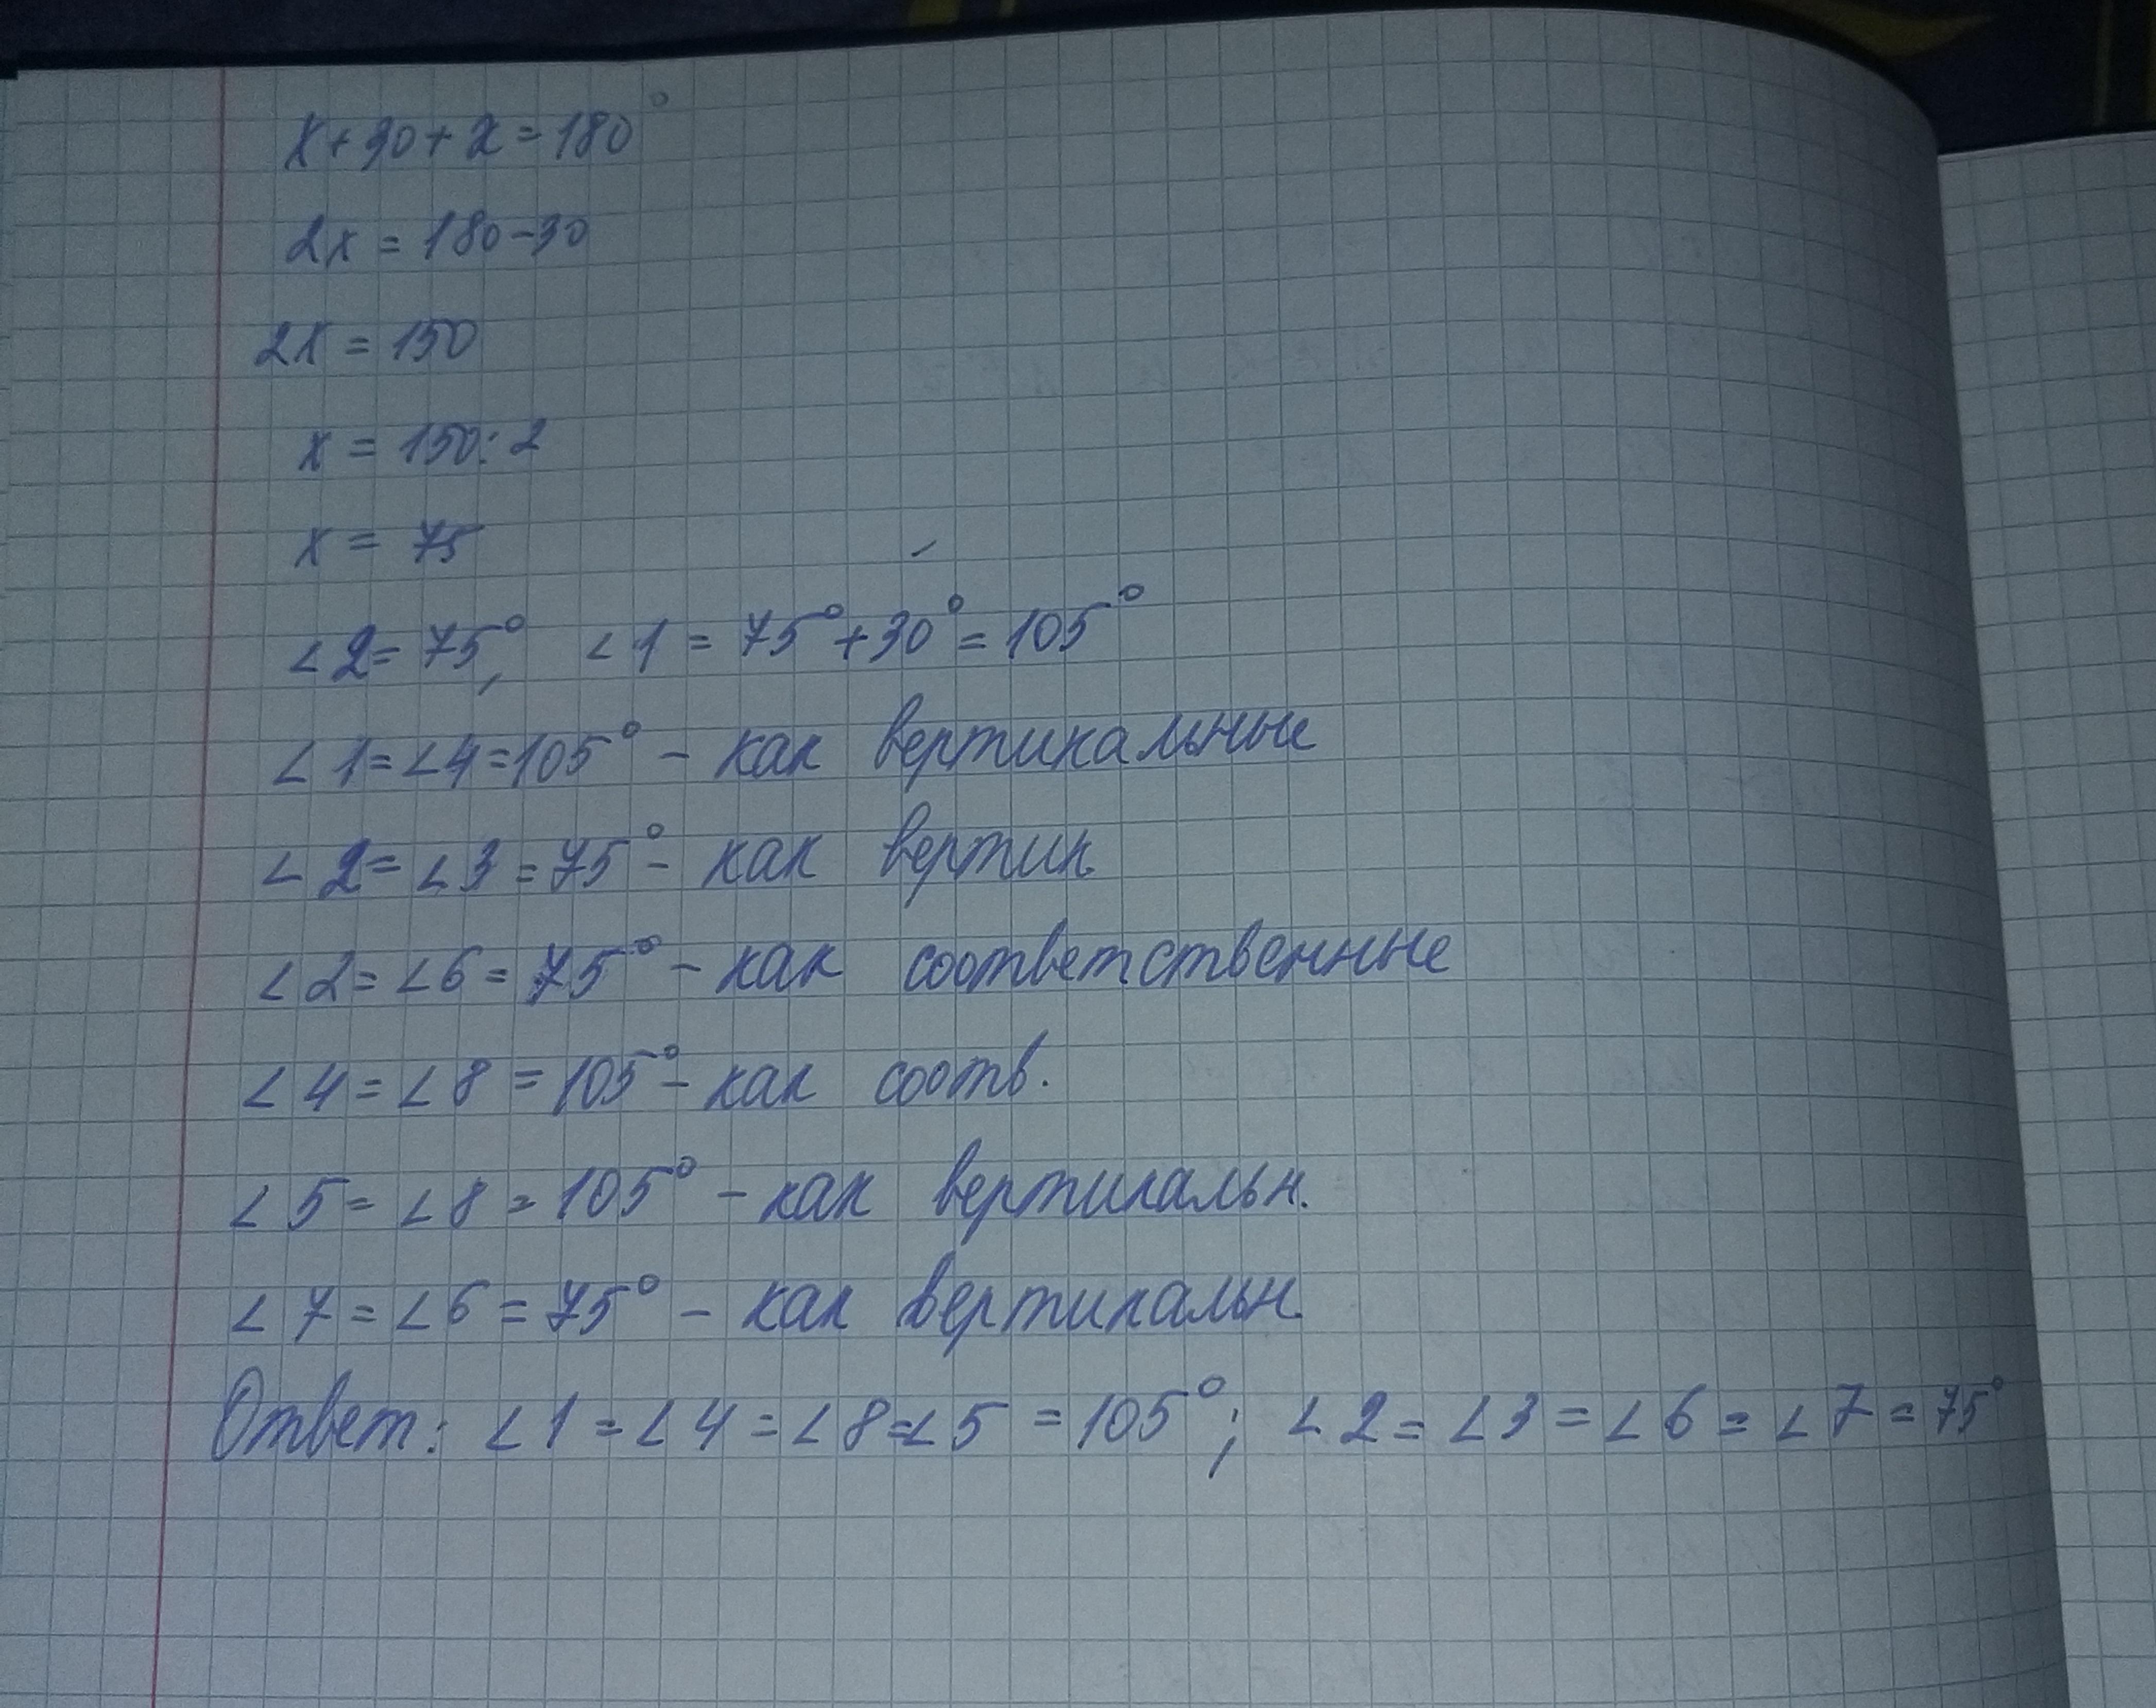 x+30+x=180°
2x = 180-30
2x = 150
x = 150:2
x = 75
∠2=75°, ∠1 = 75°+30°=105°
∠1=∠4=105° - как вертикальные
∠2=∠3=75° - как вертик.
∠2=∠6=75° - как соответственные
∠4=∠8=105° - как соотв.
∠5=∠8=105° - как вертикальн.
∠7=∠6=75° - как вертикальн.
Ответ: ∠1=∠4=∠8=∠5=105°; ∠2=∠3=∠6=∠7=75°